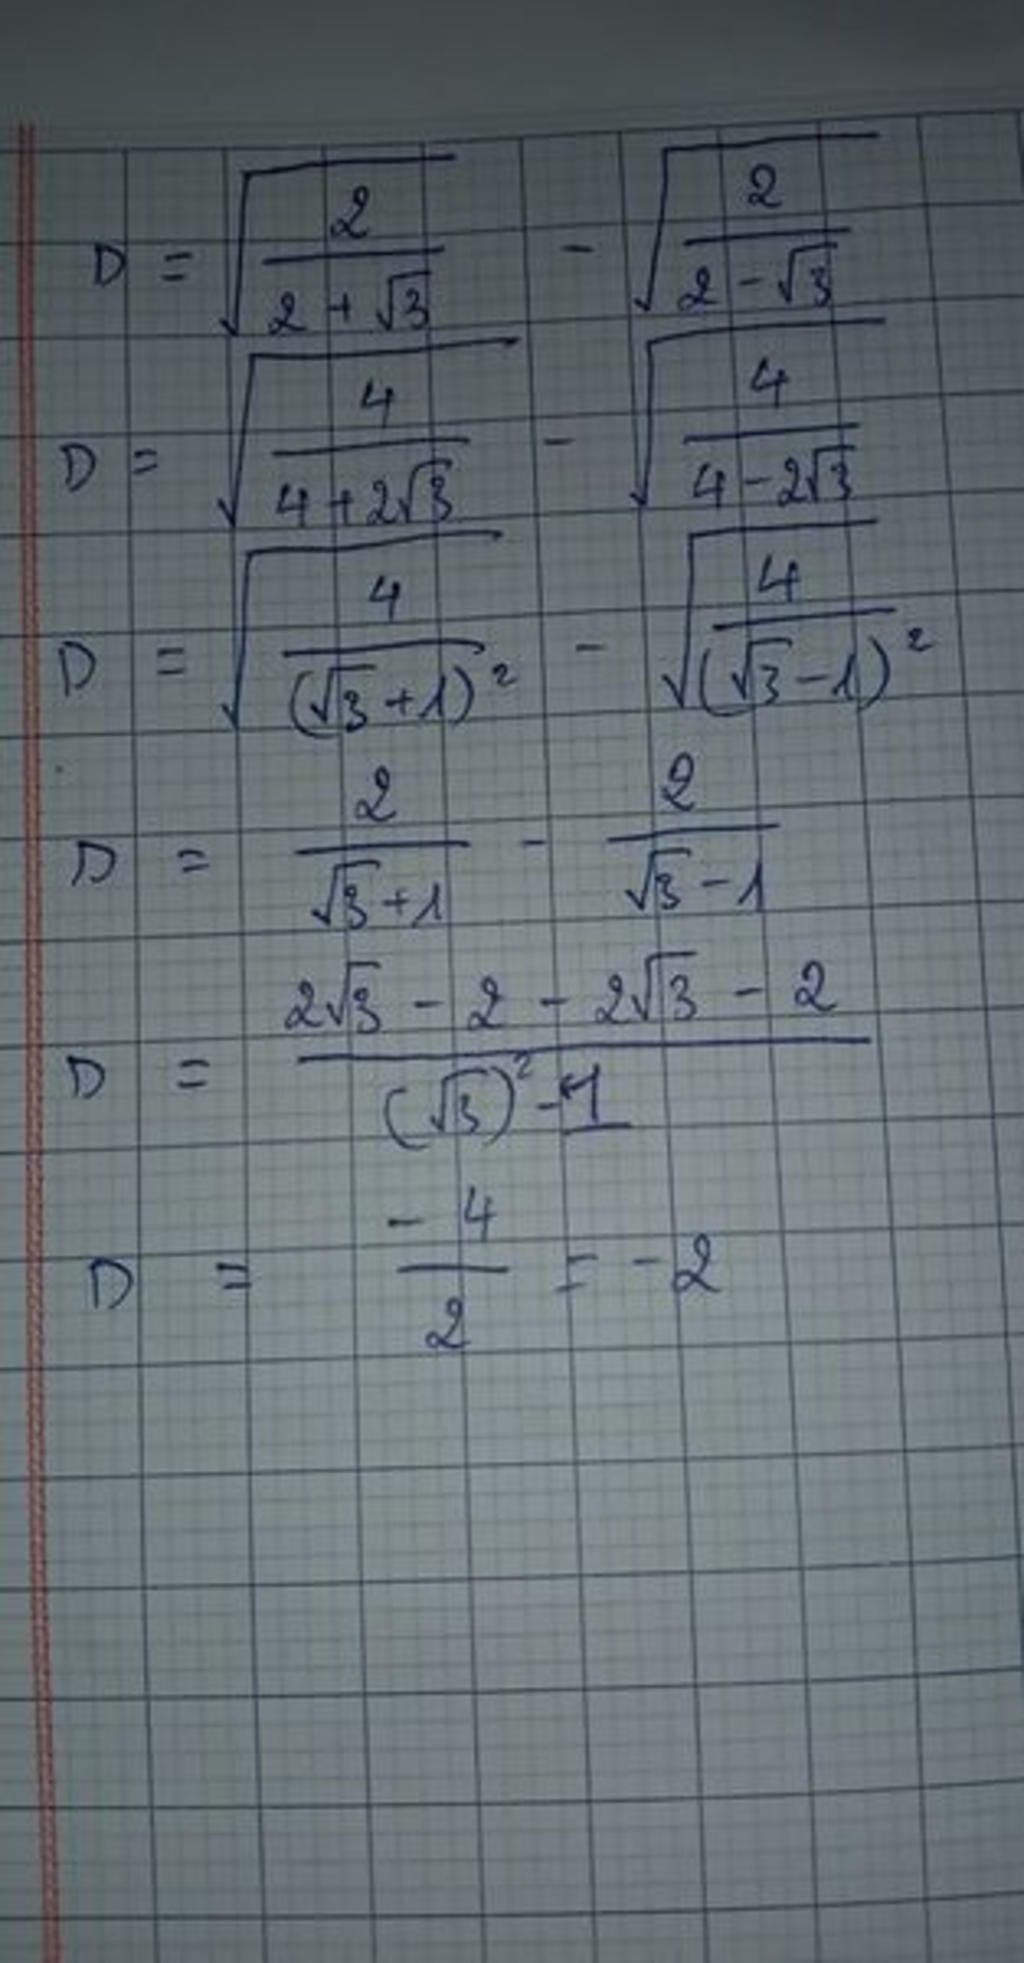 D = √(2/(2 + √3)) - √(2/(2 - √3))
D = √(4/(4 + 2√3)) - √(4/(4 - 2√3))
D = √(4/(√3 + 1)²) - √(4/(√3 - 1)²)
D = 2/(√3 + 1) - 2/(√3 - 1)
D = (2√3 - 2 - 2√3 - 2)/((√3)² - 1)
D = -4/2 = -2